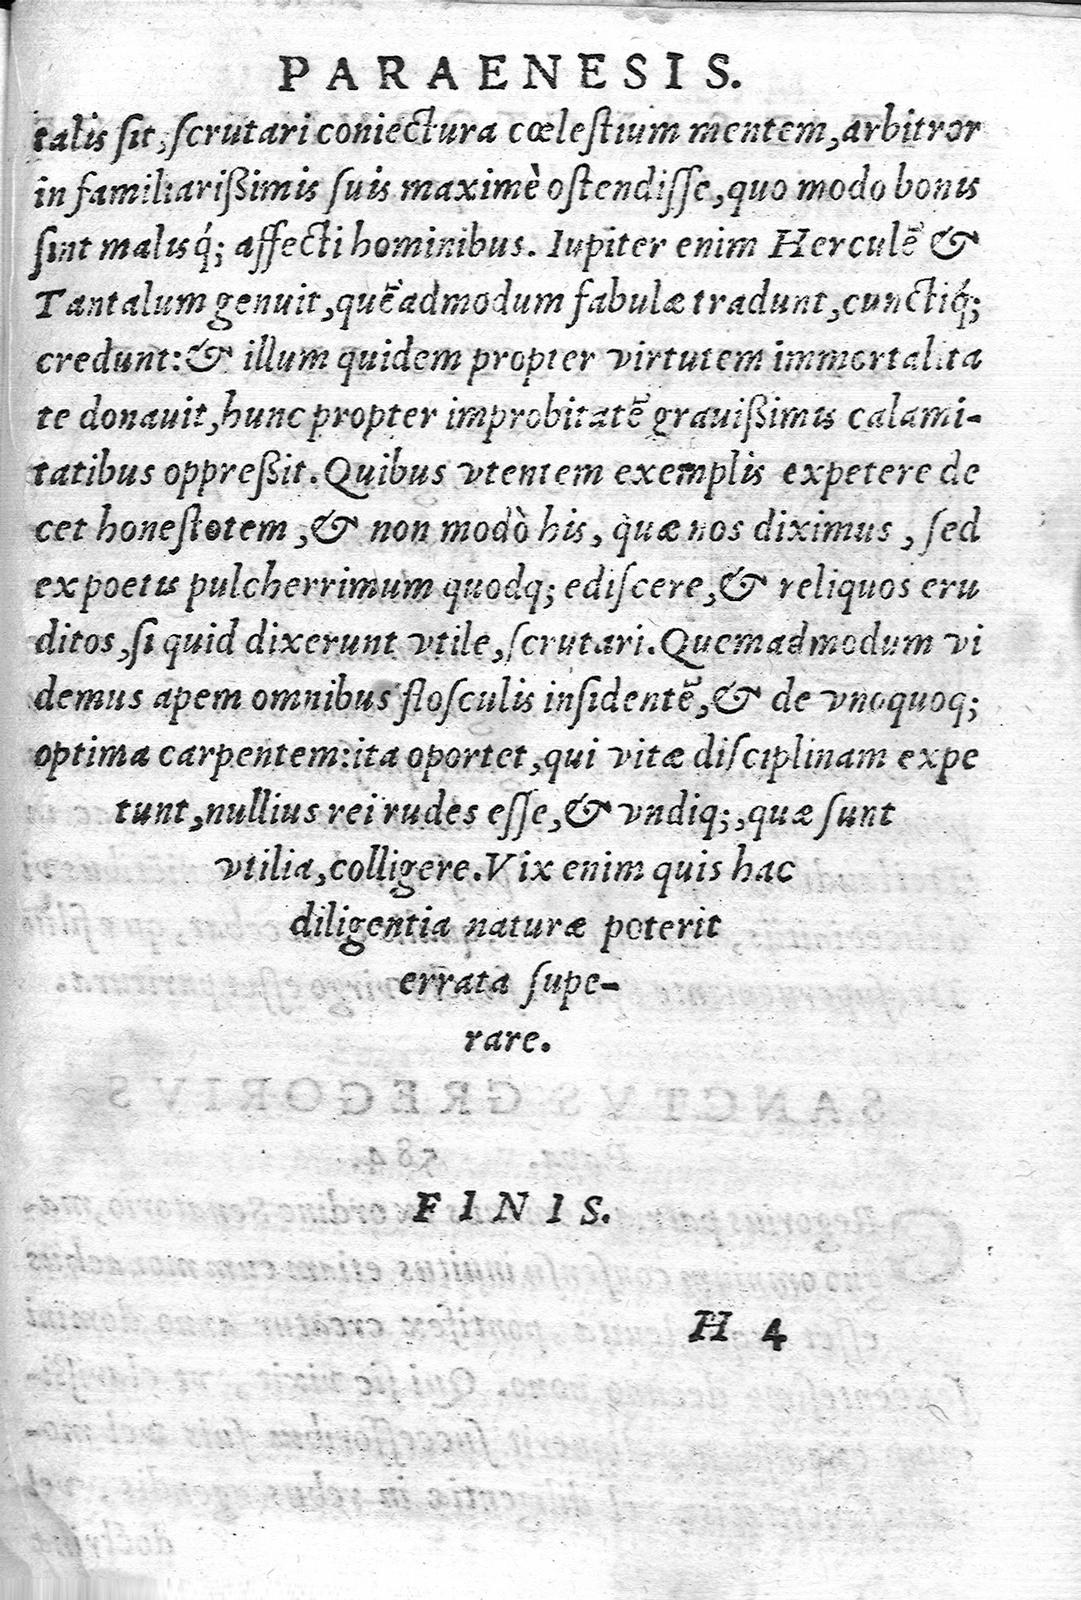 PARAENESIS.
talis sit, scrutari coniectura cœlestium mentem, arbitror
in familiarißimis suis maximè ostendisse, quo modo bonis
sint malisq́; affecti hominibus. Iupiter enim Herculẽ &
Tantalum genuit, quẽadmodum fabulæ tradunt, cunctiq́;
credunt: & illum quidem propter virtutem immortalita
te donauit, hunc propter improbitatẽ grauißimis calami-
tatibus oppreßit. Quibus vtentem exemplis expetere de
cet honestotem, & non modò his, quæ nos diximus, sed
ex poetis pulcherrimum quodq; ediscere, & reliquos eru
ditos, si quid dixerunt vtile, scrutari. Quemadmodum vi
demus apem omnibus flosculis insidentẽ, & de vnoquoq;
optima carpentem: ita oportet, qui vitæ disciplinam expe
tunt, nullius rei rudes esse, & vndiq;, quæ sunt
vtilia, colligere. Vix enim quis hac
diligentia naturæ poterit
errata supe-
rare.
FINIS.
H 4